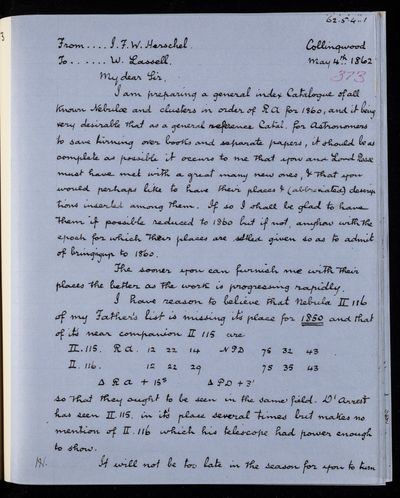 62.5.4.1
3
From .... J. F. W. Herschel. Collingwood
To ...... W. Lassell. May 4th 1862
373
My dear Sir,
I am preparing a general index Catalogue of all
known Nebulæ and clusters in order of R.A for 1860, and it being
very desirable that as a general reference Catal. for Astronomers
to save turning over books and separate papers, it should be as
complete as possible it occurs to me that you and Lord Rosse
must have met with a great many new ones, & that you
would perhaps like to have their places & (abbreviated) descrip
tions inserted among them. If so I shall be glad to have
them if possible reduced to 1860 but if not, anyhow with the
epoch for which their places are settled given so as to admit
of bringing up to 1860.
The sooner you can furnish me with their
places the better as the work is progressing rapidly.
I have reason to believe that Nebula II 116
of my Father's list is missing its place for 1850 and that
of its near companion II 115 are
II. 115. R.a. 12 22 14 NPD 75 32 43
II. 116. 12 22 29 75 35 43
Δ R a + 15s Δ PD + 3'
so that they ought to be seen in the same field. D'Arrest
has seen II. 115. in its place several times but makes no
mention of II. 116 which his telescope had power enough
to show.
It will not be too late in the season for you to turn